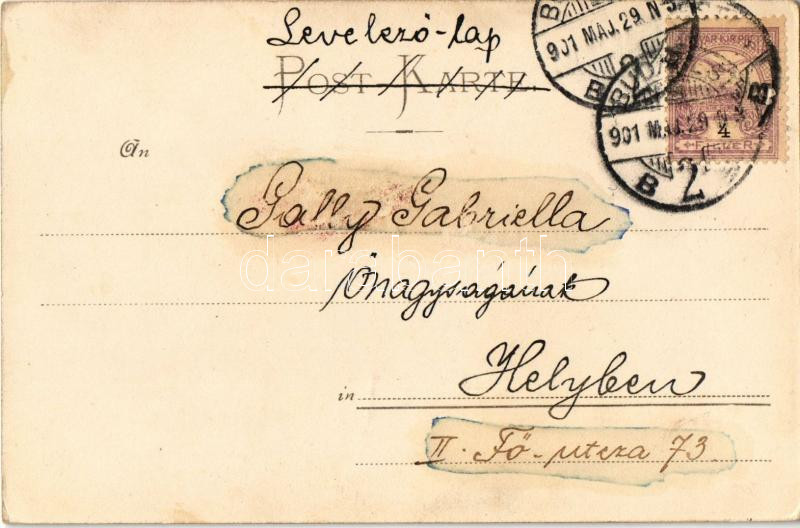 Levelező-lap
POST KARTE.
901 MÁJ. 29. N
901 MÁJ. 29 N
MAGYAR KIR. POSTA
4
FILLÉR
B
B
2
An
Gally Gabriella
Őnagyságának
darabanth
Helyben
in
II. Fő-utcza 73.